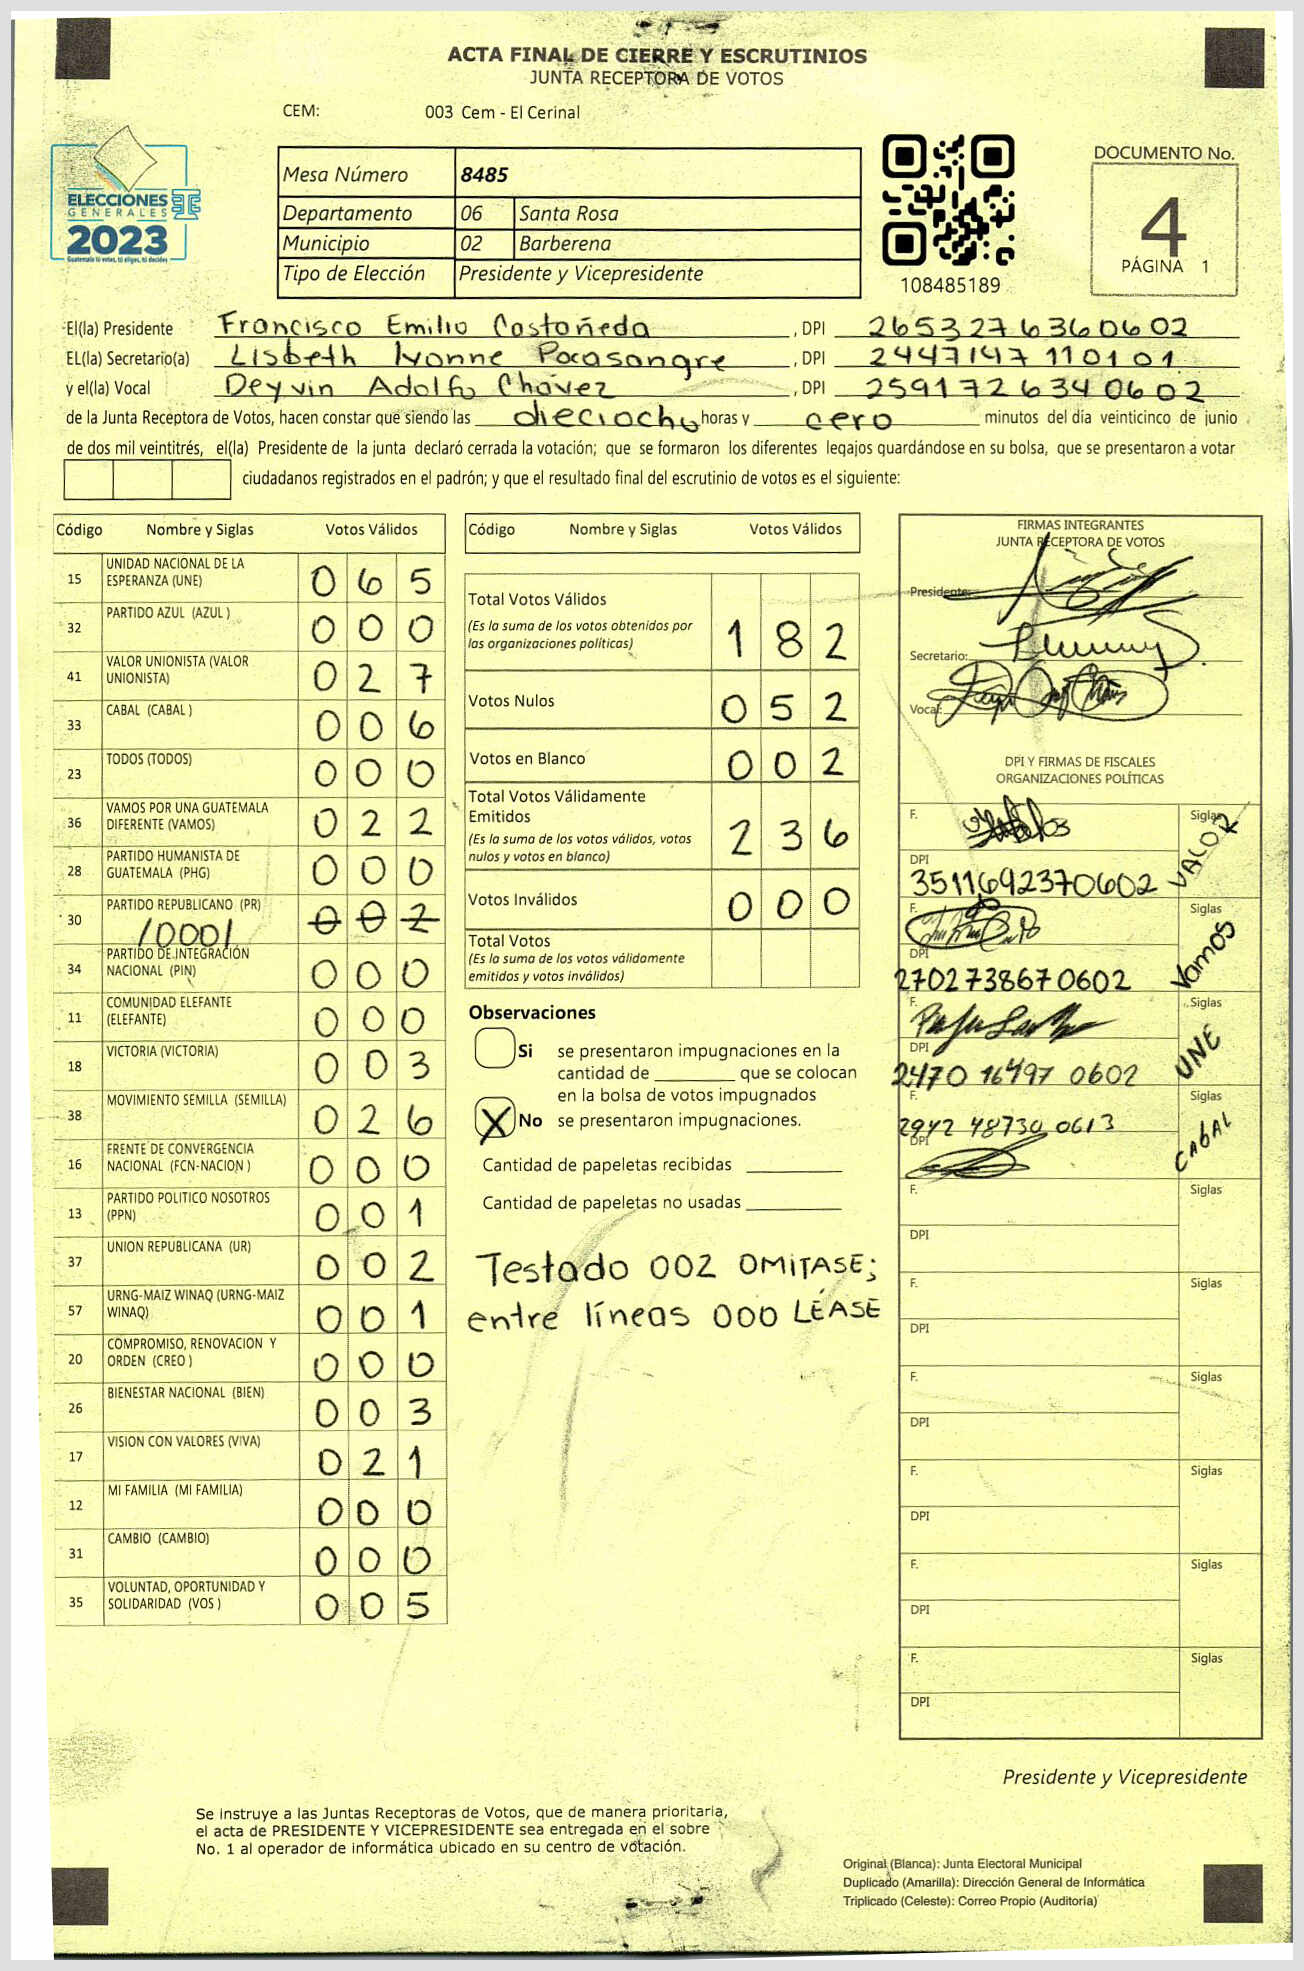 ACTA FINAL DE CIERRE Y ESCRUTINIOS
JUNTA RECEPTORA DE VOTOS
CEM: 003 Cem - El Cerinal
ELECCIONES
GENERALES
2023
Guatemala tú votas, tú eliges, tú decides
Mesa Número 8485
Departamento 06 Santa Rosa
Municipio 02 Barberena
Tipo de Elección Presidente y Vicepresidente
108485189
DOCUMENTO No.
4
PÁGINA 1
El(la) Presidente Francisco Emilio Castañeda, DPI 2653276360602
EL(la) Secretario(a) Lisbeth Ivonne Pocasangre, DPI 2447147110101
y el(la) Vocal Deyvin Adolfo Chávez, DPI 2591726340602
de la Junta Receptora de Votos, hacen constar que siendo las dieciocho horas y cero minutos del día veinticinco de junio
de dos mil veintitrés, el(la) Presidente de la junta declaró cerrada la votación; que se formaron los diferentes legajos guardándose en su bolsa, que se presentaron a votar
ciudadanos registrados en el padrón; y que el resultado final del escrutinio de votos es el siguiente:
Código Nombre y Siglas Votos Válidos
15 UNIDAD NACIONAL DE LA ESPERANZA (UNE) 065
32 PARTIDO AZUL (AZUL ) 000
41 VALOR UNIONISTA (VALOR UNIONISTA) 027
33 CABAL (CABAL ) 006
23 TODOS (TODOS) 000
36 VAMOS POR UNA GUATEMALA DIFERENTE (VAMOS) 022
28 PARTIDO HUMANISTA DE GUATEMALA (PHG) 000
30 PARTIDO REPUBLICANO (PR) 002
/000/
34 PARTIDO DE INTEGRACIÓN NACIONAL (PIN) 000
11 COMUNIDAD ELEFANTE (ELEFANTE) 000
18 VICTORIA (VICTORIA) 003
38 MOVIMIENTO SEMILLA (SEMILLA) 026
16 FRENTE DE CONVERGENCIA NACIONAL (FCN-NACION ) 000
13 PARTIDO POLITICO NOSOTROS (PPN) 001
37 UNION REPUBLICANA (UR) 002
57 URNG-MAIZ WINAQ (URNG-MAIZ WINAQ) 001
20 COMPROMISO, RENOVACION Y ORDEN (CREO ) 000
26 BIENESTAR NACIONAL (BIEN) 003
17 VISION CON VALORES (VIVA) 021
12 MI FAMILIA (MI FAMILIA) 000
31 CAMBIO (CAMBIO) 000
35 VOLUNTAD, OPORTUNIDAD Y SOLIDARIDAD (VOS ) 005
Código Nombre y Siglas Votos Válidos
Total Votos Válidos
(Es la suma de los votos obtenidos por
las organizaciones políticas) 182
Votos Nulos 052
Votos en Blanco 002
Total Votos Válidamente
Emitidos
(Es la suma de los votos válidos, votos
nulos y votos en blanco) 236
Votos Inválidos 000
Total Votos
(Es la suma de los votos válidamente
emitidos y votos inválidos)
Observaciones
Si se presentaron impugnaciones en la
cantidad de ________ que se colocan
en la bolsa de votos impugnados
X No se presentaron impugnaciones.
Cantidad de papeletas recibidas
Cantidad de papeletas no usadas
Testado 002 OMITASE;
entre líneas 000 LÉASE
FIRMAS INTEGRANTES
JUNTA RECEPTORA DE VOTOS
Presidente:
Secretario:
Vocal:
DPI Y FIRMAS DE FISCALES
ORGANIZACIONES POLÍTICAS
F. Siglas VALOR
DPI 3511692370602
F. Siglas Vamos
DPI 2702738670602
F. Siglas UNE
DPI 2470 16497 0602
F. Siglas CABAL
2942 48730 0613
DPI
F. Siglas
DPI
F. Siglas
DPI
F. Siglas
DPI
F. Siglas
DPI
F. Siglas
DPI
F. Siglas
DPI
Presidente y Vicepresidente
Se instruye a las Juntas Receptoras de Votos, que de manera prioritaria,
el acta de PRESIDENTE Y VICEPRESIDENTE sea entregada en el sobre
No. 1 al operador de informática ubicado en su centro de votación.
Original (Blanca): Junta Electoral Municipal
Duplicado (Amarilla): Dirección General de Informática
Triplicado (Celeste): Correo Propio (Auditoría)